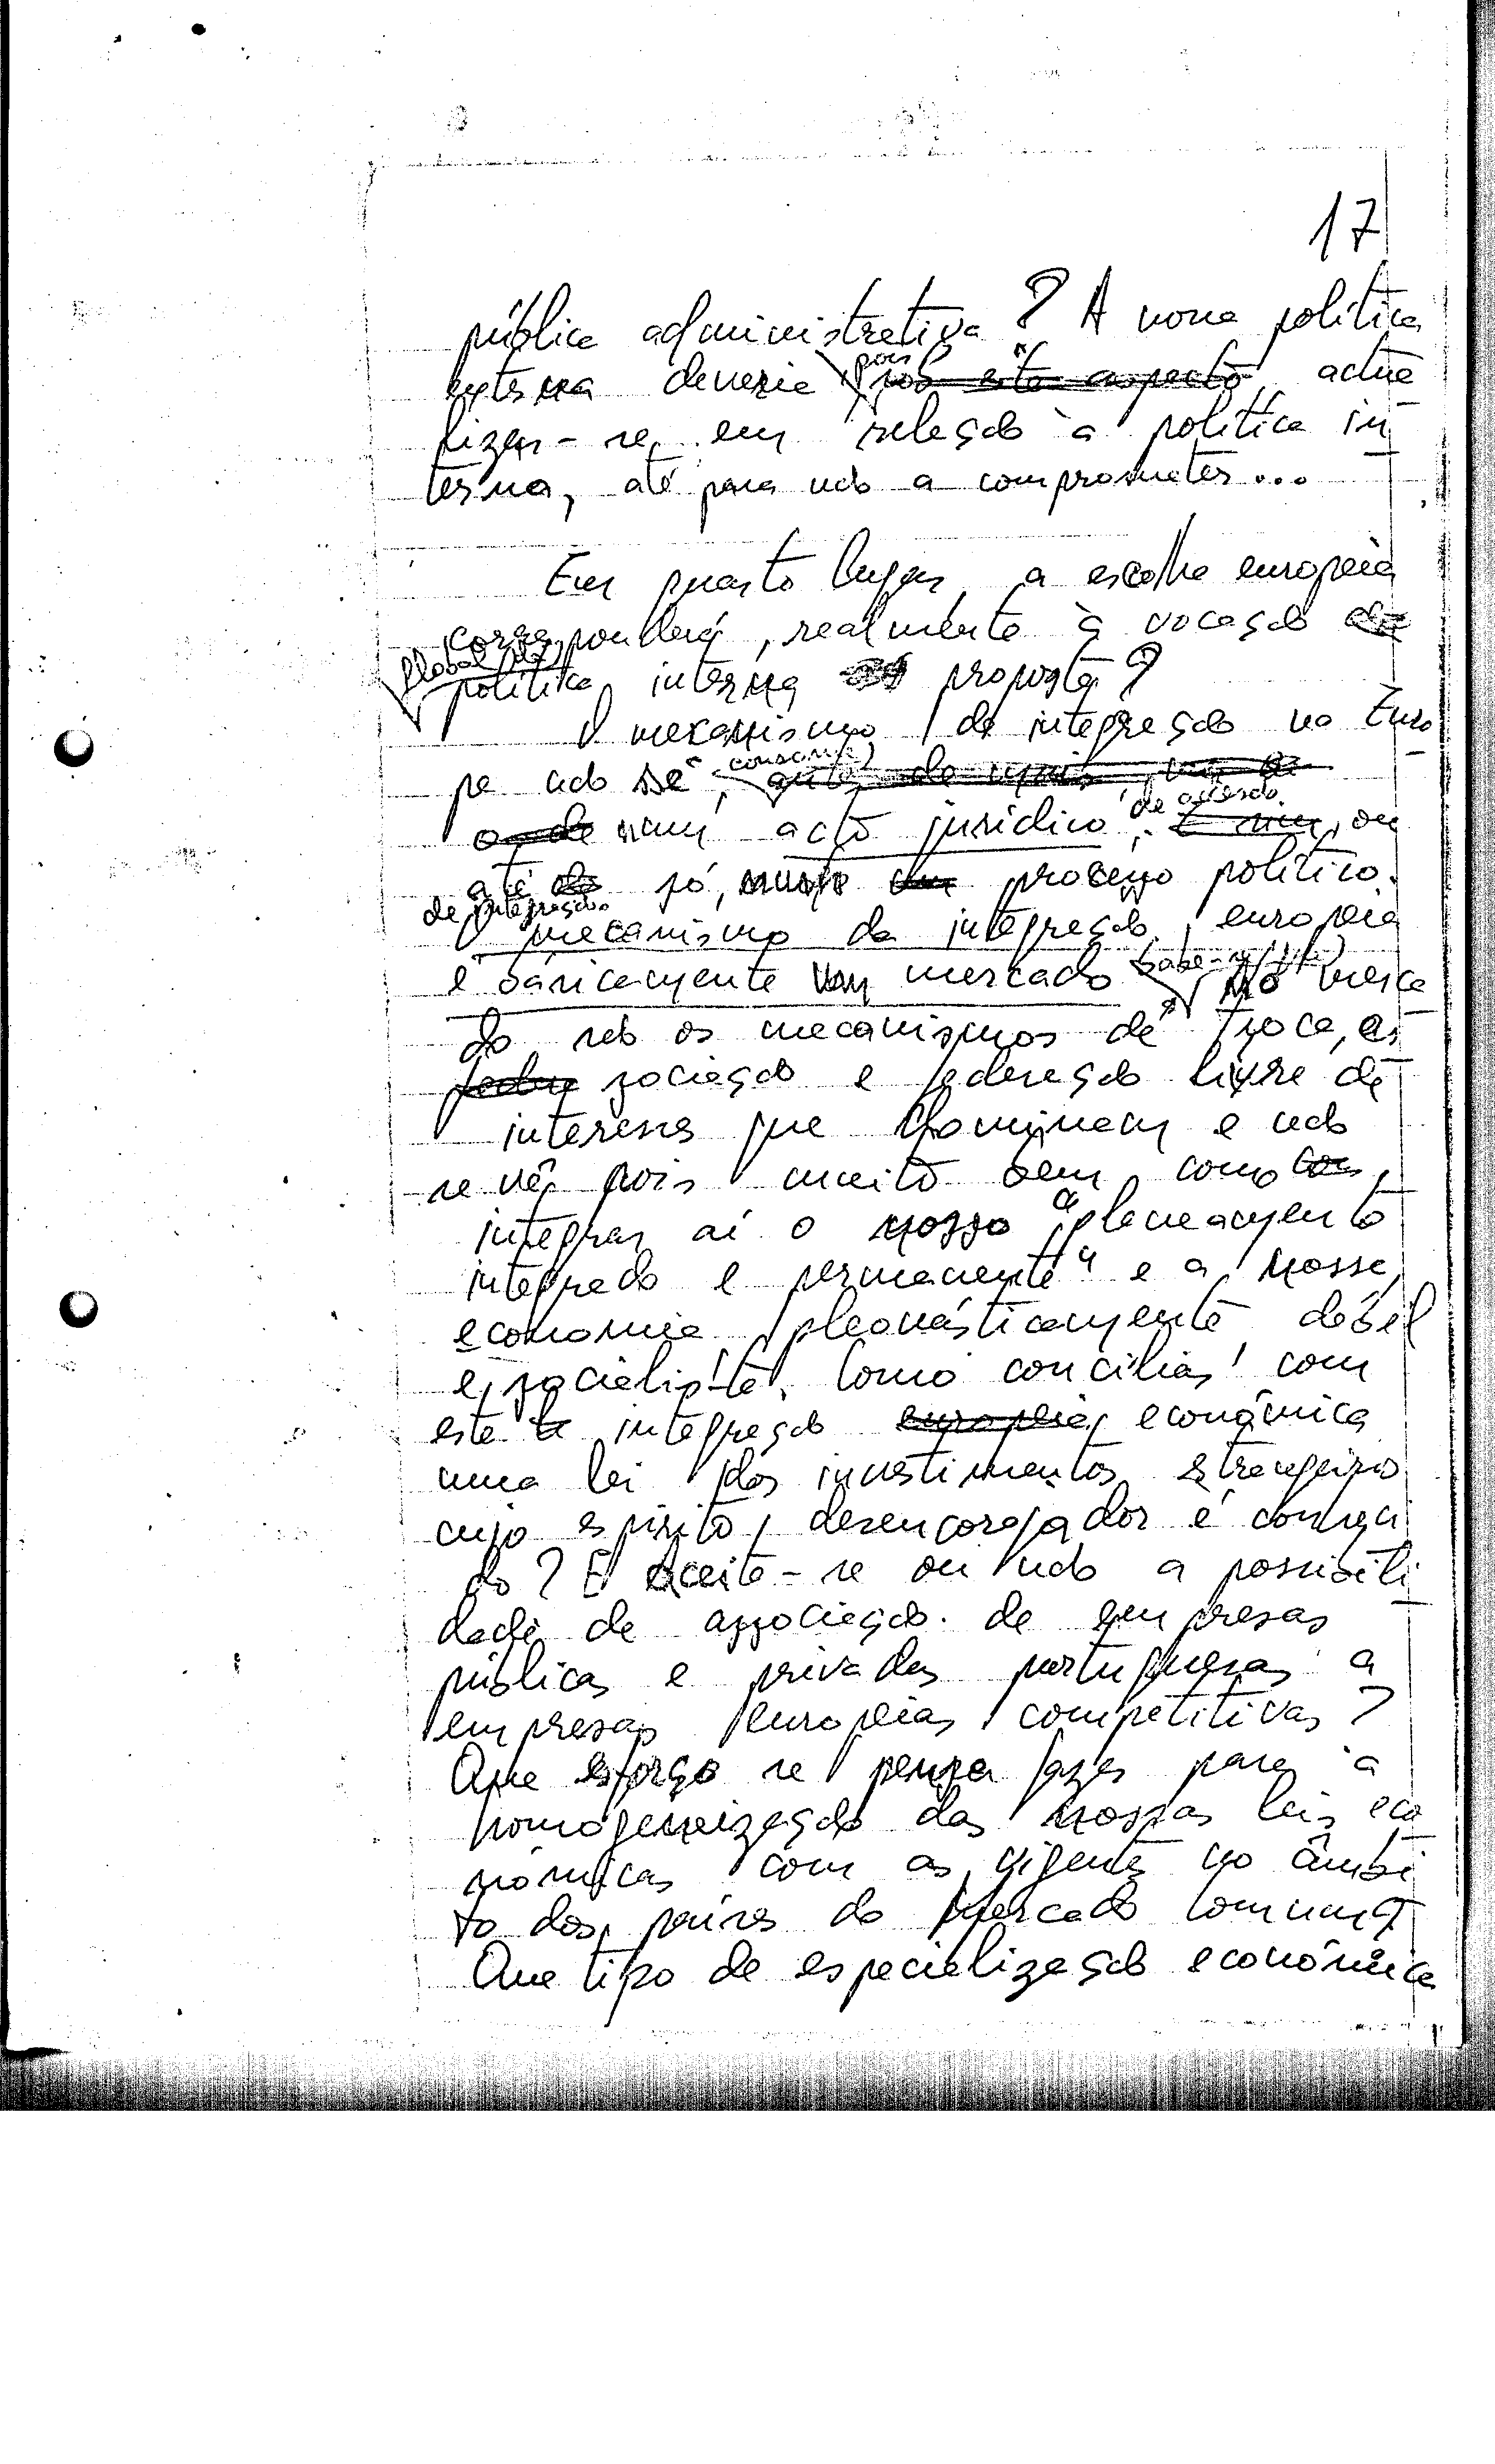 17
pública administrativa? A nova política
externa deveria pois sob este aspecto actua
lizar-se em relação à política in
terna, até para não a comprometer...
Em quarto lugar, a escolha europeia
corresponderá, realmente à vocação da
global da
política interna proposta?
O mecanismo de integração na Euro
pa não se antes de mais
num acto jurídico de adesão. É um, ou
até só, num processo político.
de integração
O mecanismo da integração europeia
é basicamente um mercado sabe-se. No merca
do são os mecanismos de troca, as
sociação e federação livre de
interesses que dominam e não
se vê pois muito bem como
integrar aí o nosso "planeamento
integrado e permanente" e a nossa
economia pleonásticamente débil
e socialista. Como conciliar com
esta integração europeia económica
uma lei dos investimentos estrangeiros
cujo espírito desencorajador é conheci
do? E aceita-se ou não a possibili
dade de associação de empresas
públicas e privadas portuguesas a
empresas europeias competitivas?
Que esforço se pensa fazer para a
homogeneização das nossas leis eco
nómicas com as vigentes no âmbi
to dos países do Mercado Comum?
Que tipo de especialização económica